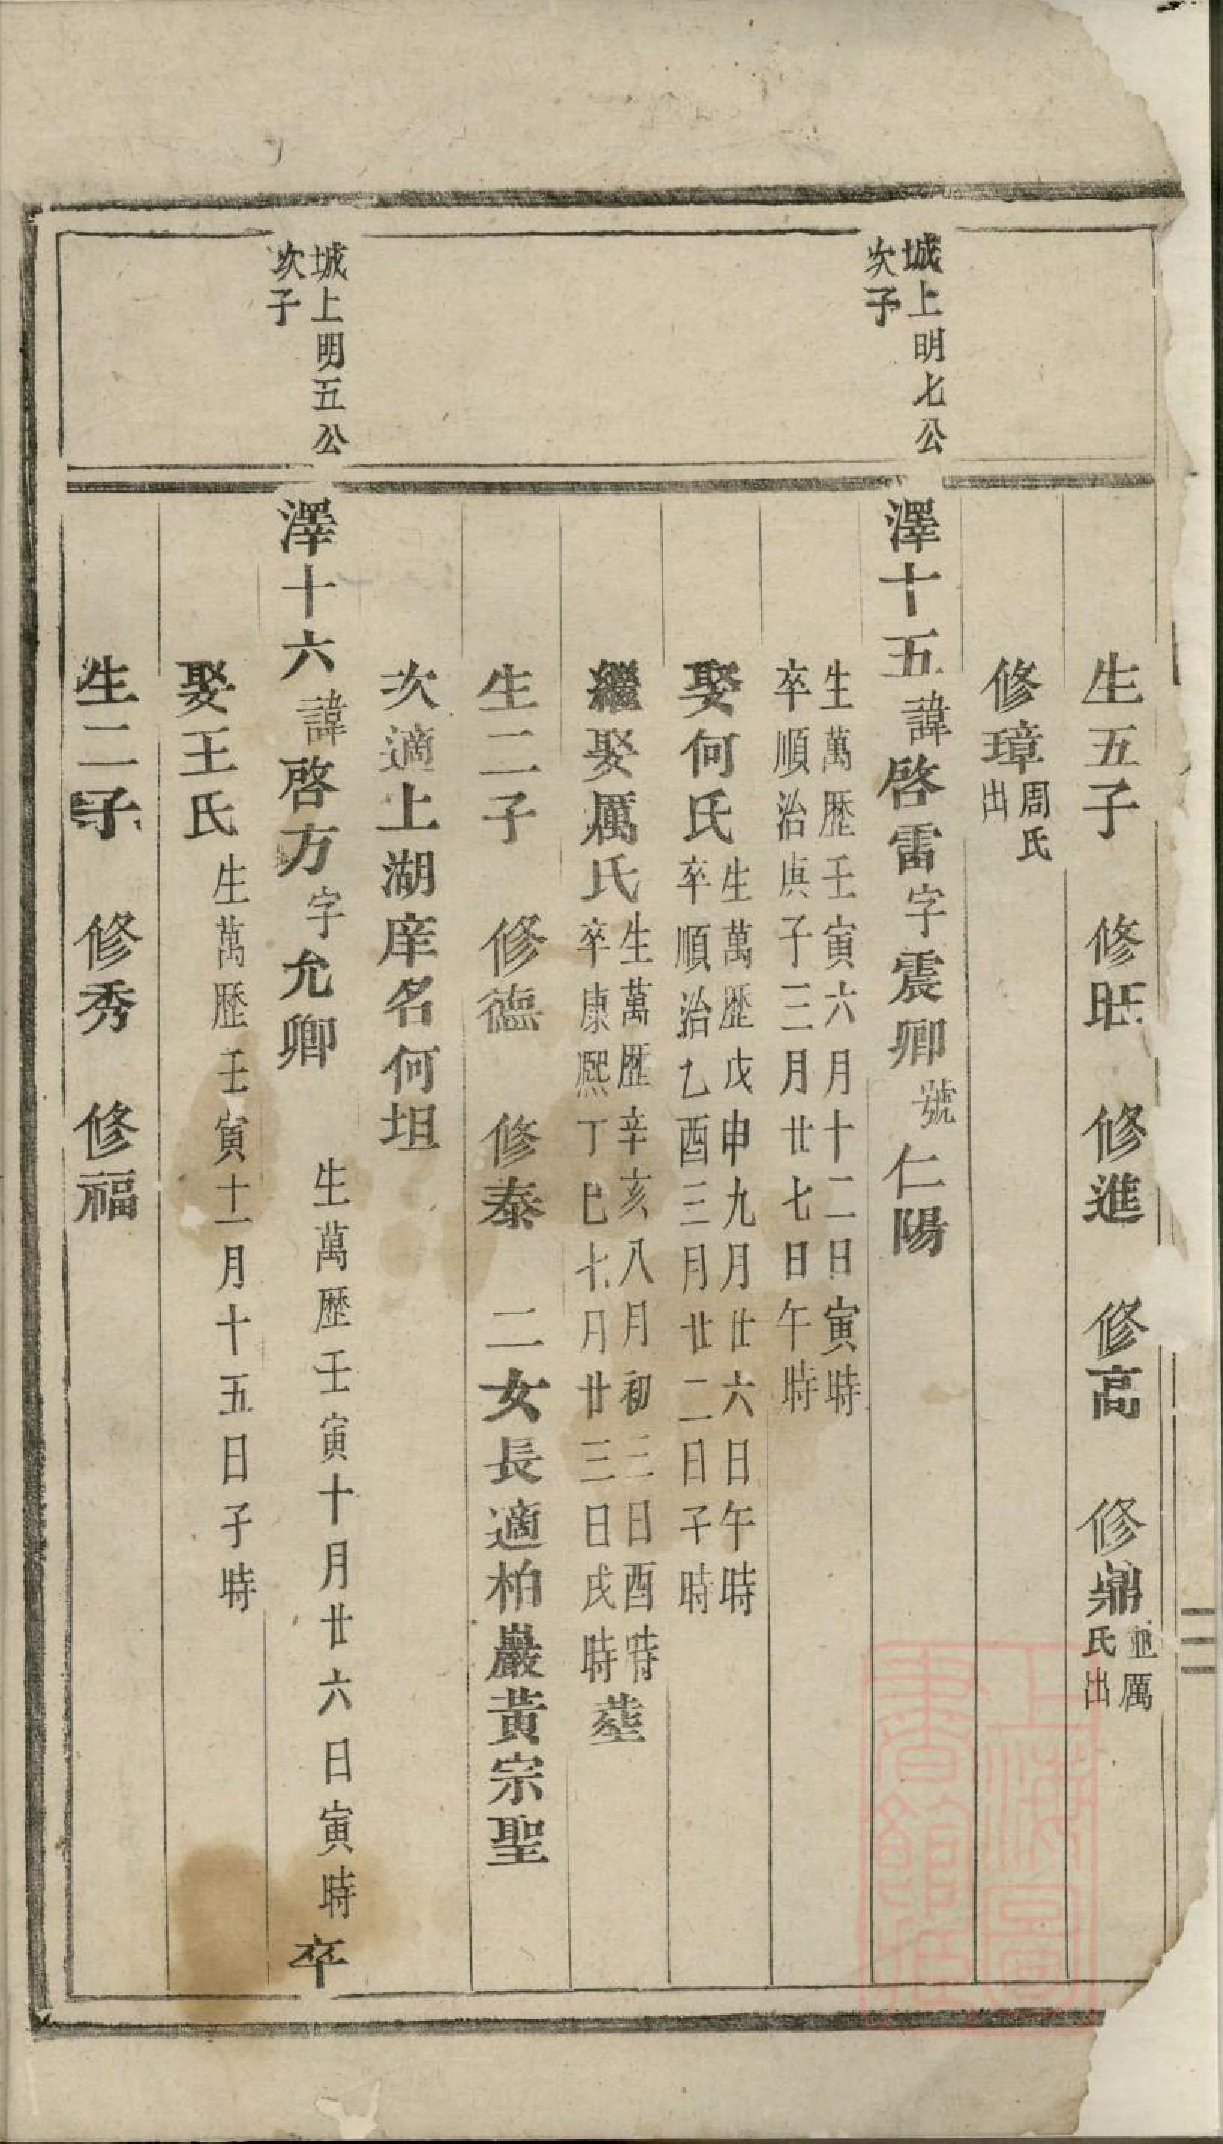 生五子　修旺　修進　修高　修鼎並厲氏出
修璋周氏出
城上明七公次子
澤十五諱啓雷字震卿號仁陽
生萬歷壬寅六月十二日寅時
卒順治庚子三月廿七日午時
娶何氏生萬歷戊申九月廿六日午時卒順治乙酉三月廿二日子時
繼娶厲氏生萬歷辛亥八月初三日酉時卒康熙丁巳七月廿三日戌時塟
生二子　修德　修泰　二女長適柏巖黃宗聖
次適上湖庠名何坦
城上明五公次子
澤十六諱啓方字允卿　生萬歷壬寅十月廿六日寅時卒
娶王氏生萬歷壬寅十一月十五日子時
生二子　修秀　修福
上海圖書館藏